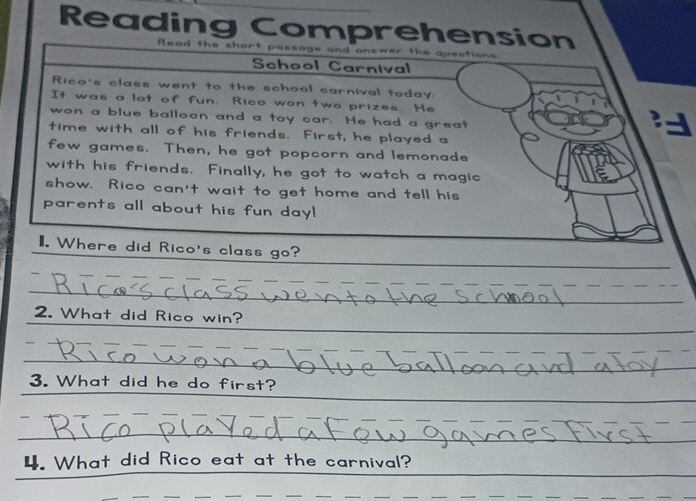 Reading Comprehension
Read the short passage and answer the questions.
School Carnival
Rico's class went to the school carnival today.
It was a lot of fun. Rico won two prizes. He
won a blue balloon and a toy car. He had a great
time with all of his friends. First, he played a
few games. Then, he got popcorn and lemonade
with his friends. Finally, he got to watch a magic
show. Rico can't wait to get home and tell his
parents all about his fun day!
1. Where did Rico's class go?
Rico's class went to the school
2. What did Rico win?
Rico won a blue balloon and a toy
3. What did he do first?
Rico played a few games first
4. What did Rico eat at the carnival?